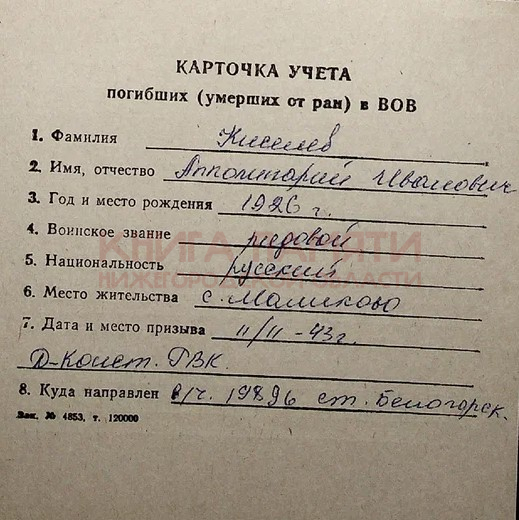 КАРТОЧКА УЧЕТА
погибших (умерших от ран) в ВОВ
1. Фамилия Киселев
2. Имя, отчество Апполинарий Иванович
3. Год и место рождения 1926 г.
4. Воинское звание рядовой
КНИГА ПАМЯТИ
5. Национальность русский
НИЖЕГОРОДСКОЙ ОБЛАСТИ
6. Место жительства с. Маликово
7. Дата и место призыва 11/II-43г.
Д-Конст. ГВК.
8. Куда направлен в/ч. 19896 ст. Белогорск.
Зак. № 4853, т. 120000